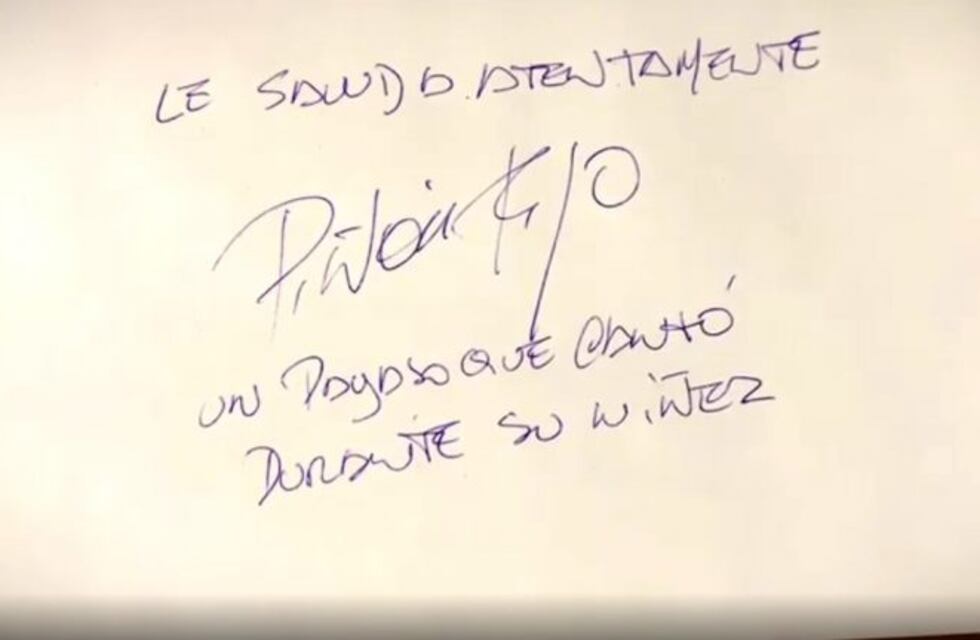 LE SALUDA ATENTAMENTE
UN PAYASO QUE CANTÓ
DURANTE SU NIÑEZ